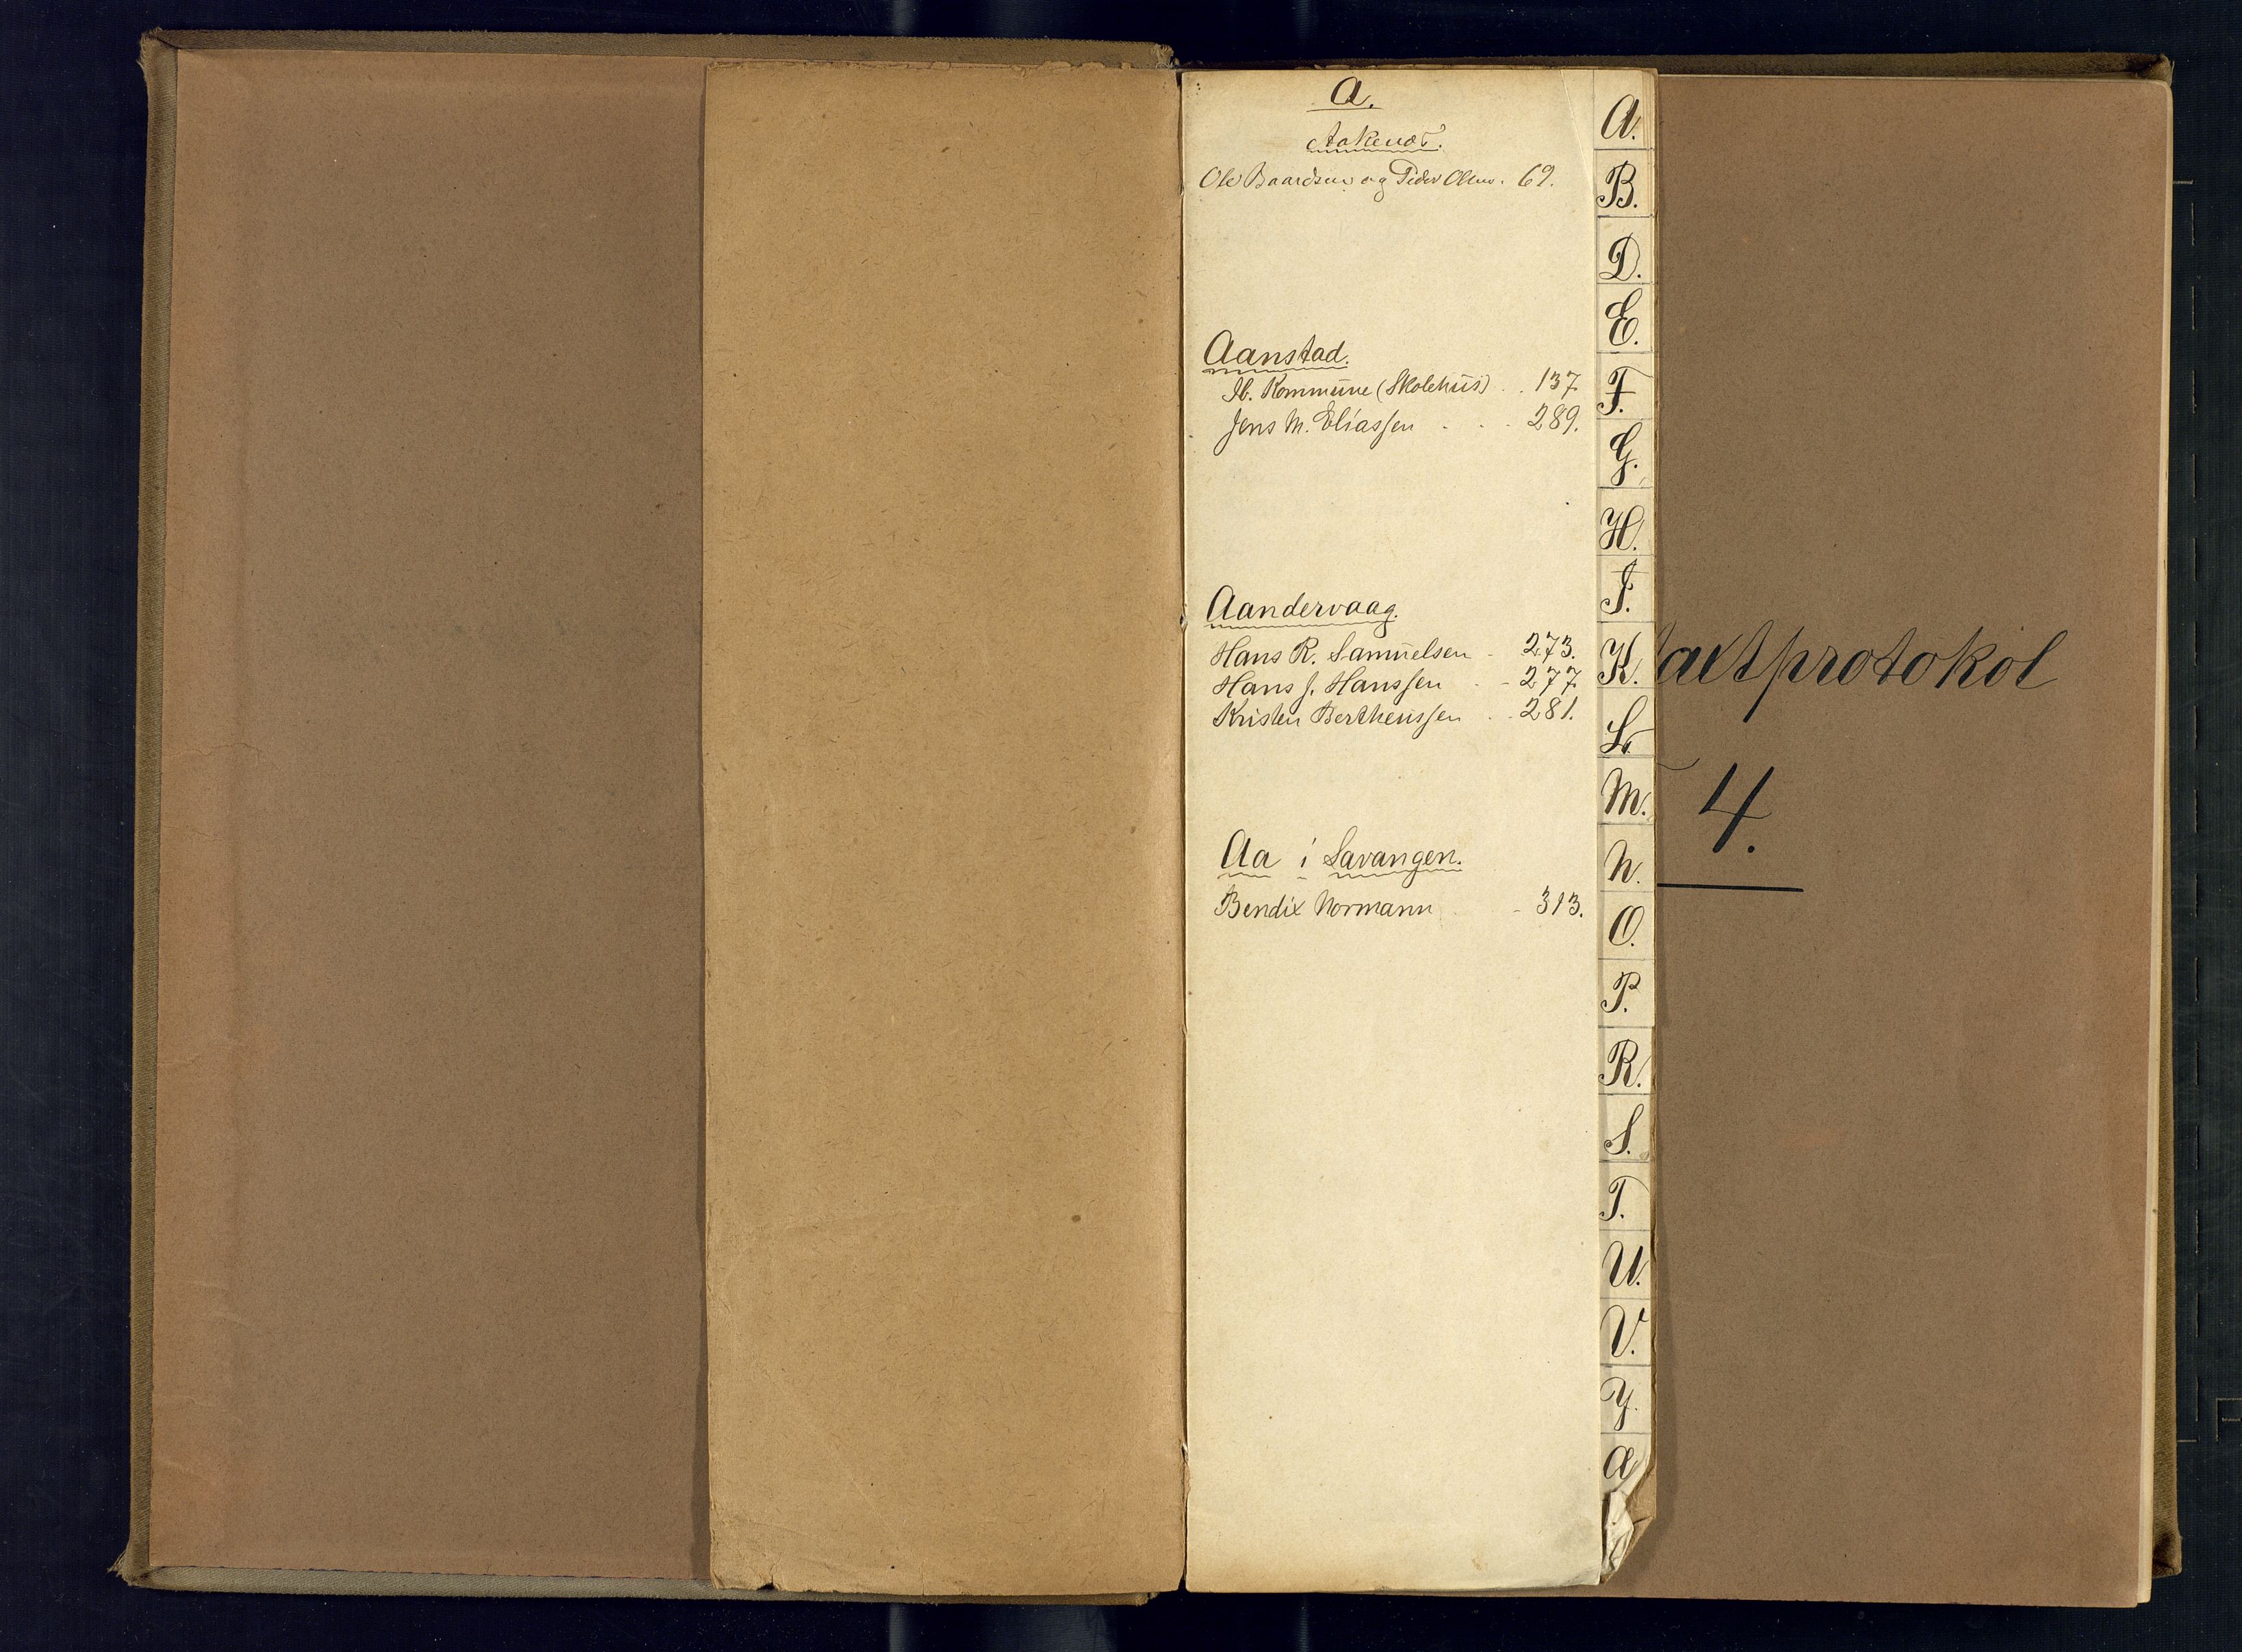 A.
Aakenes.
Ole Baardsen og Peder Olsen. 69.
Aanstad.
Ib. Kommune (Skolehus) . . 137.
Jens M. Eliassen . . . 289.
Aandervaag.
Hans R. Samuelsen - 273.
Hans J. Hanssen - - 277.
Kristen Bertheussen . . 281.
Aa i Lavangen.
Bendix Normann - 313.
A.
B.
D.
E.
F.
G.
H.
J.
K.
L.
M.
N.
O.
P.
R.
S.
T.
U.
V.
Y.
a
axtprotokol
4.